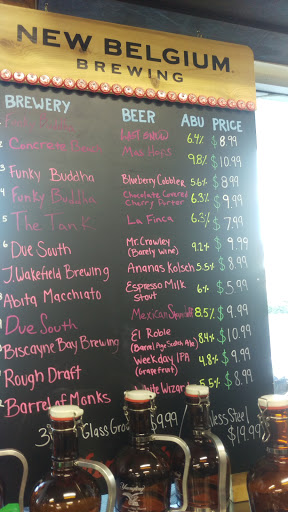 NEW BELGIUM
BREWING
BREWERY BEER ABU PRICE
LAST SNOW 6.4% $8.99
Concrete Beach Mas Hops 9.8% $10.99
3 Funky Buddha Blueberry Cobbler 5.6% $8.99
4 Funky Buddha Chocolate Caramel Cherry Porter 6.3% $9.99
5 The Tank La Finca 6.3% $7.99
6 Due South Mr. Crowley (Barely Wine) 9.2% $9.99
J. Wakefield Brewing Ananas Kolsch 5.5% $8.99
Abita Macchiato Espresso Milk Stout 6% $5.99
Due South Mexican 8.5% $9.99
Biscayne Bay Brewing El Roble (Barrel Age Scotch Ale) 8.4% $10.99
Rough Draft Weekday IPA (Grapefruit) 4.8% $9.99
Barrel of Monks White Wizard 5.5% $8.99
Glass $9.99 Steel
$19.99